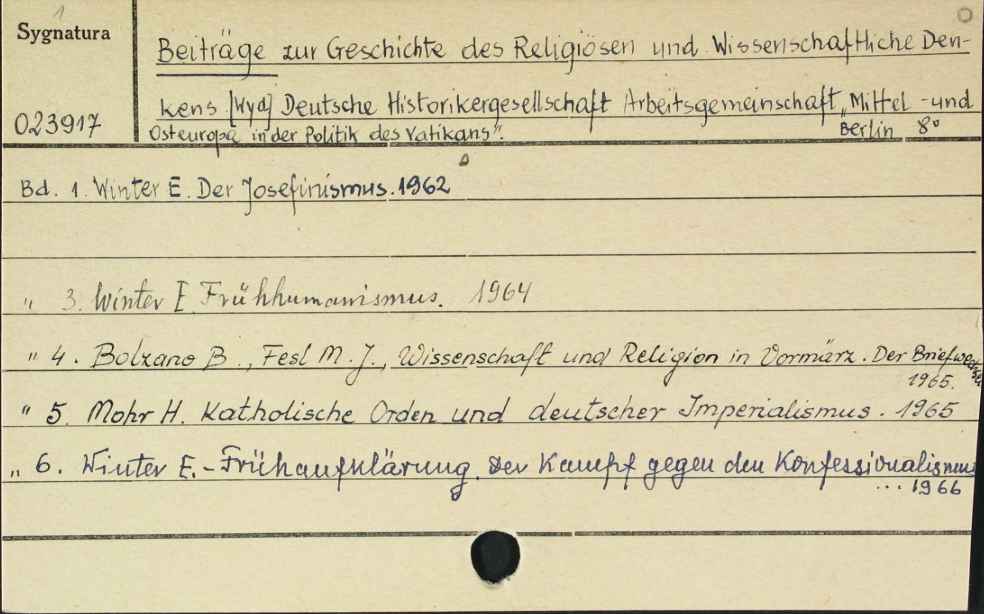 1
Sygnatura
Beiträge zur Geschichte des Religiösen und Wissenschaftliche Den-
kens [Wyd] Deutsche Historikergesellschaft Arbeitsgemeinschaft „Mittel - und
023917
Osteuropa in der Politik des Vatikans". Berlin 8°
Bd. 1. Winter E. Der Josefinismus. 1962
" 3. Winter E Frühhumanismus. 1964
" 4. Bolzano B., Fesl M. J., Wissenschaft und Religion in Vormärz. Der Briefwechsel
1965.
" 5. Mohr H. Katholische Orden und deutscher Imperialismus. 1965
" 6. Winter E. - Frühaufklärung. Der Kampf gegen den Konfessionalismus
... 1966